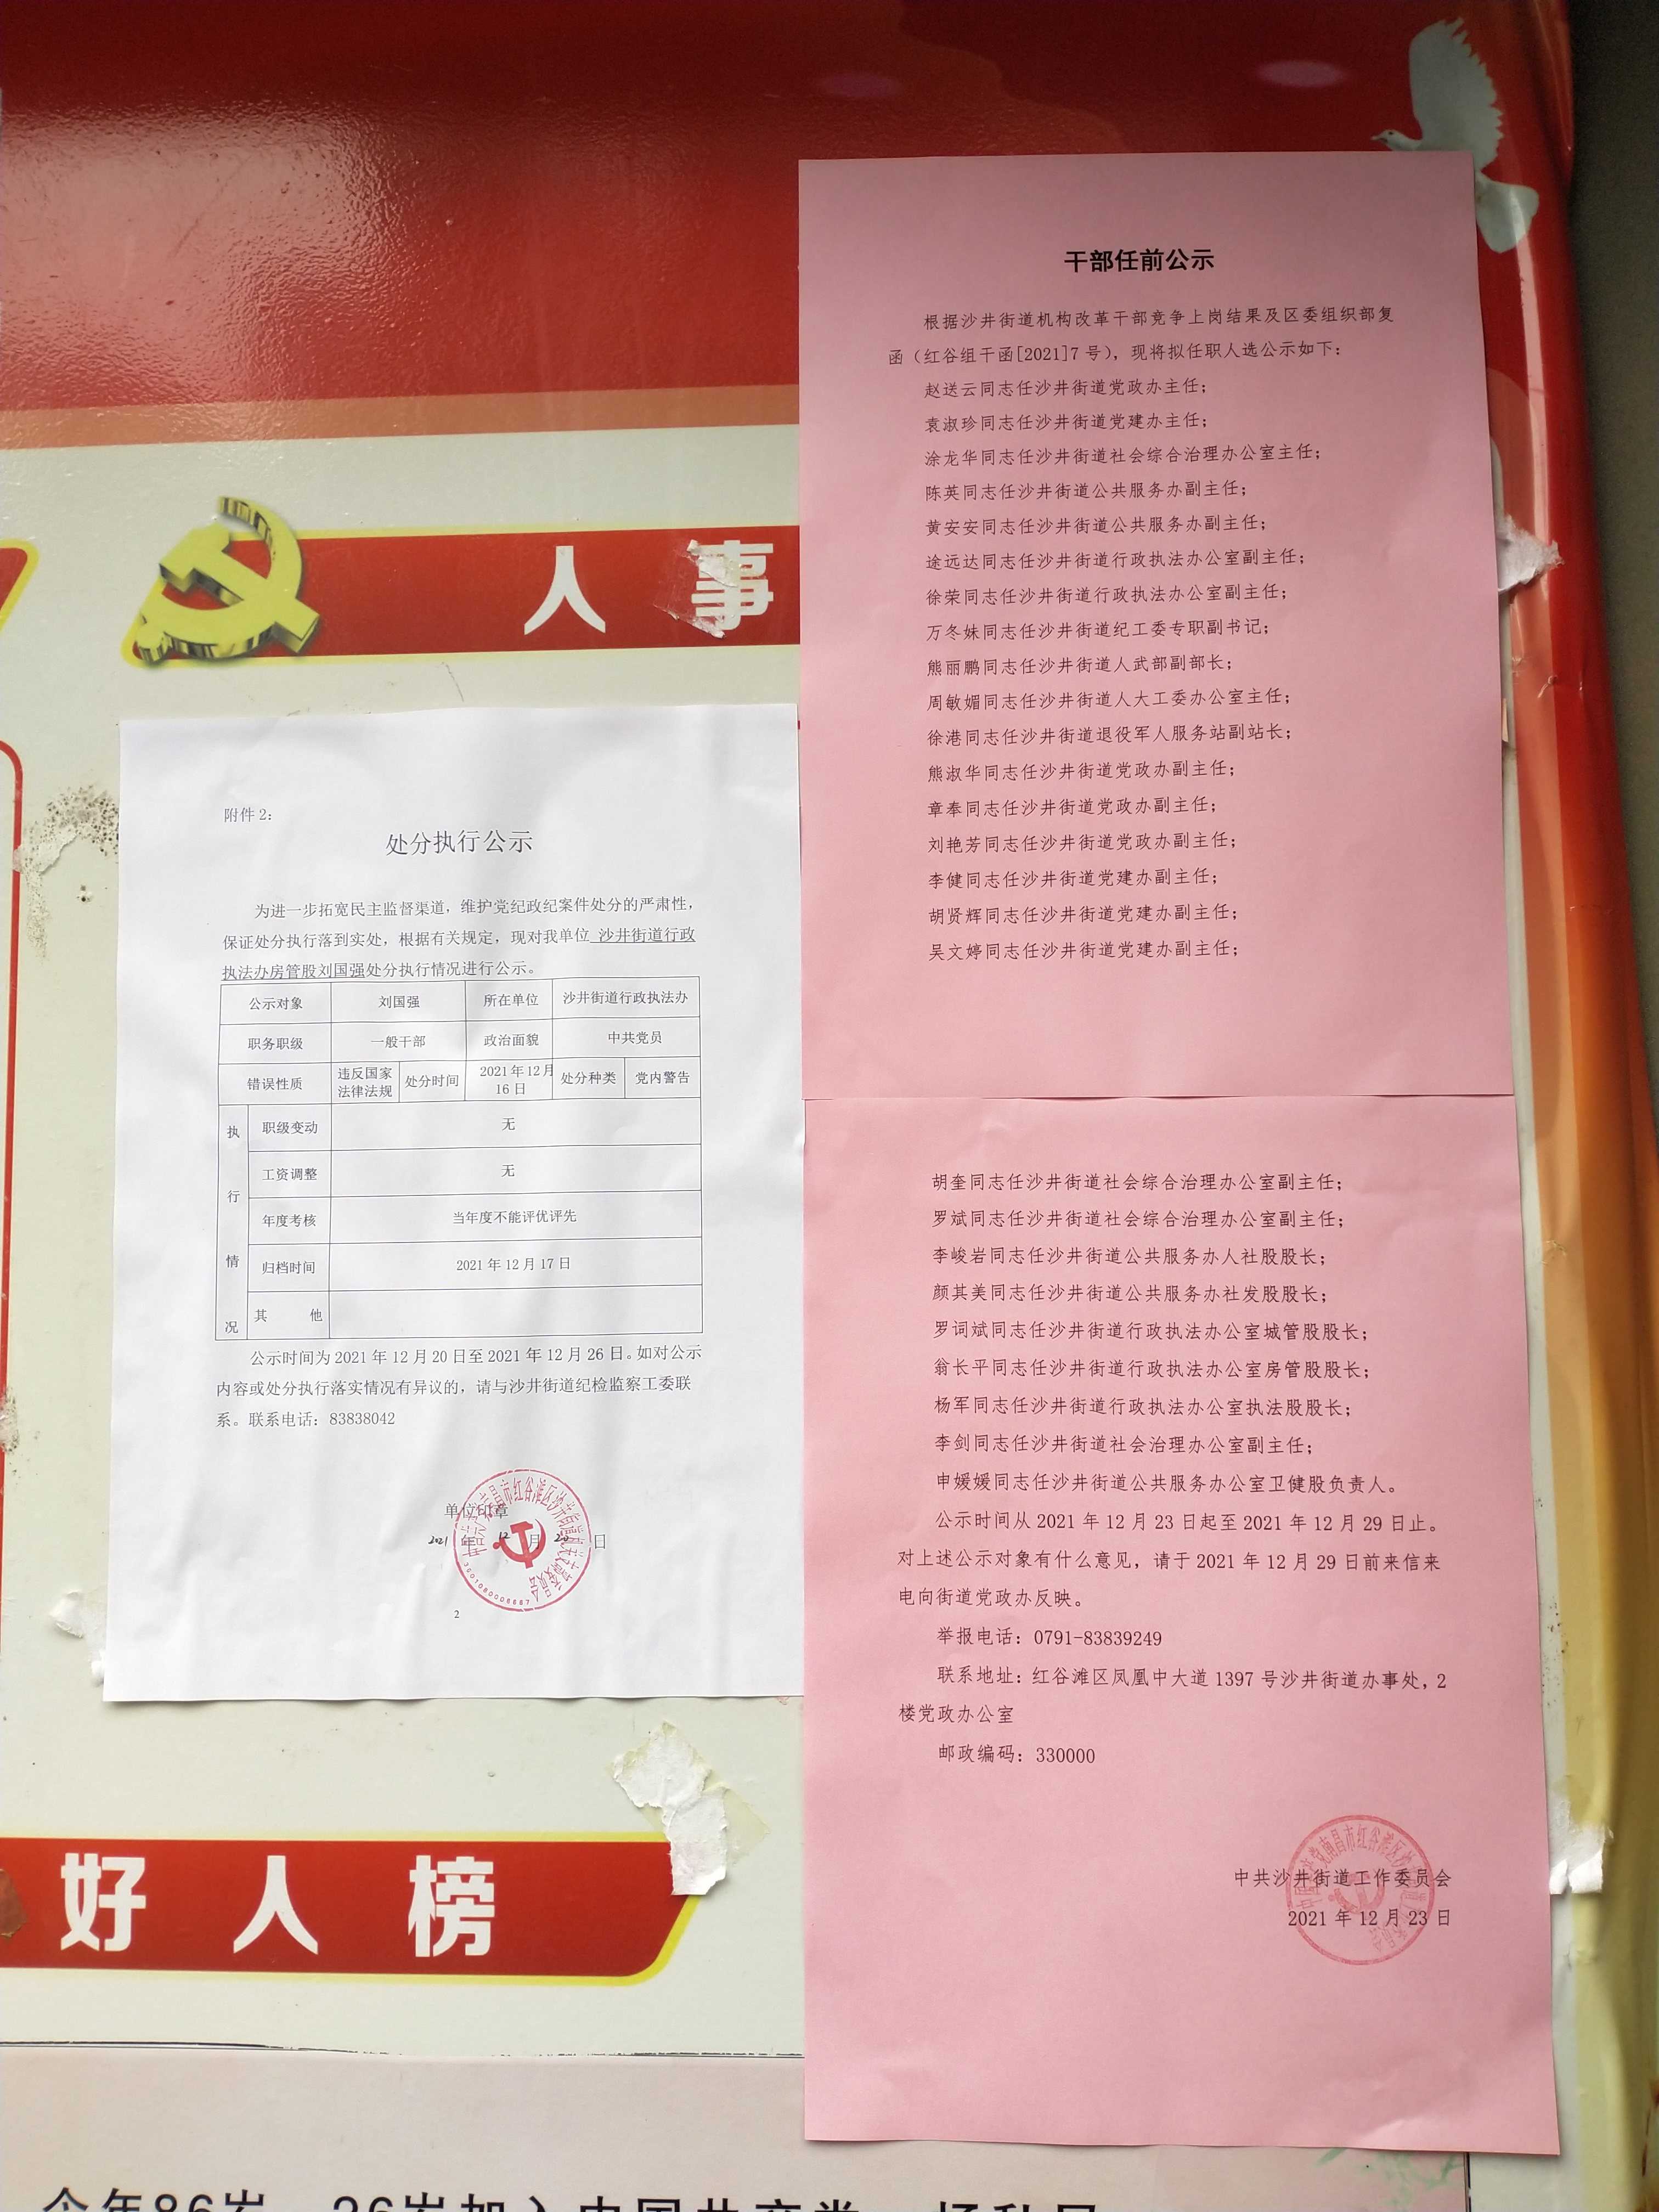 人事
附件2:
处分执行公示
为进一步拓宽民主监督渠道，维护党纪政纪案件处分的严肃性，
保证处分执行落到实处，根据有关规定，现对我单位 沙井街道行政
执法办房管股刘国强处分执行情况进行公示。
公示对象 刘国强 所在单位 沙井街道行政执法办
职务职级 一般干部 政治面貌 中共党员
错误性质 违反国家法律法规 处分时间 2021年12月16日 处分种类 党内警告
执行情况
职级变动 无
工资调整 无
年度考核 当年度不能评优评先
归档时间 2021年12月17日
其 他
公示时间为2021年12月20日至2021年12月26日。如对公示
内容或处分执行落实情况有异议的，请与沙井街道纪检监察工委联
系。联系电话：83838042
单位印章
2021 年 12 月 20 日
2
好人榜
干部任前公示
根据沙井街道机构改革干部竞争上岗结果及区委组织部复
函（红谷组干函[2021]7号），现将拟任职人选公示如下：
赵送云同志任沙井街道党政办主任；
袁淑珍同志任沙井街道党建办主任；
涂龙华同志任沙井街道社会综合治理办公室主任；
陈英同志任沙井街道公共服务办副主任；
黄安安同志任沙井街道公共服务办副主任；
途远达同志任沙井街道行政执法办公室副主任；
徐荣同志任沙井街道行政执法办公室副主任；
万冬妹同志任沙井街道纪工委专职副书记；
熊丽鹏同志任沙井街道人武部副部长；
周敏媚同志任沙井街道人大工委办公室主任；
徐港同志任沙井街道退役军人服务站副站长；
熊淑华同志任沙井街道党政办副主任；
章奉同志任沙井街道党政办副主任；
刘艳芳同志任沙井街道党政办副主任；
李健同志任沙井街道党建办副主任；
胡贤辉同志任沙井街道党建办副主任；
吴文婷同志任沙井街道党建办副主任；
胡奎同志任沙井街道社会综合治理办公室副主任；
罗斌同志任沙井街道社会综合治理办公室副主任；
李峻岩同志任沙井街道公共服务办人社股股长；
颜其美同志任沙井街道公共服务办社发股股长；
罗词斌同志任沙井街道行政执法办公室城管股股长；
翁长平同志任沙井街道行政执法办公室房管股股长；
杨军同志任沙井街道行政执法办公室执法股股长；
李剑同志任沙井街道社会治理办公室副主任；
申媛媛同志任沙井街道公共服务办公室卫健股负责人。
公示时间从2021年12月23日起至2021年12月29日止。
对上述公示对象有什么意见，请于2021年12月29日前来信来
电向街道党政办反映。
举报电话：0791-83839249
联系地址：红谷滩区凤凰中大道1397号沙井街道办事处，2
楼党政办公室
邮政编码：330000
中共沙井街道工作委员会
2021年12月23日